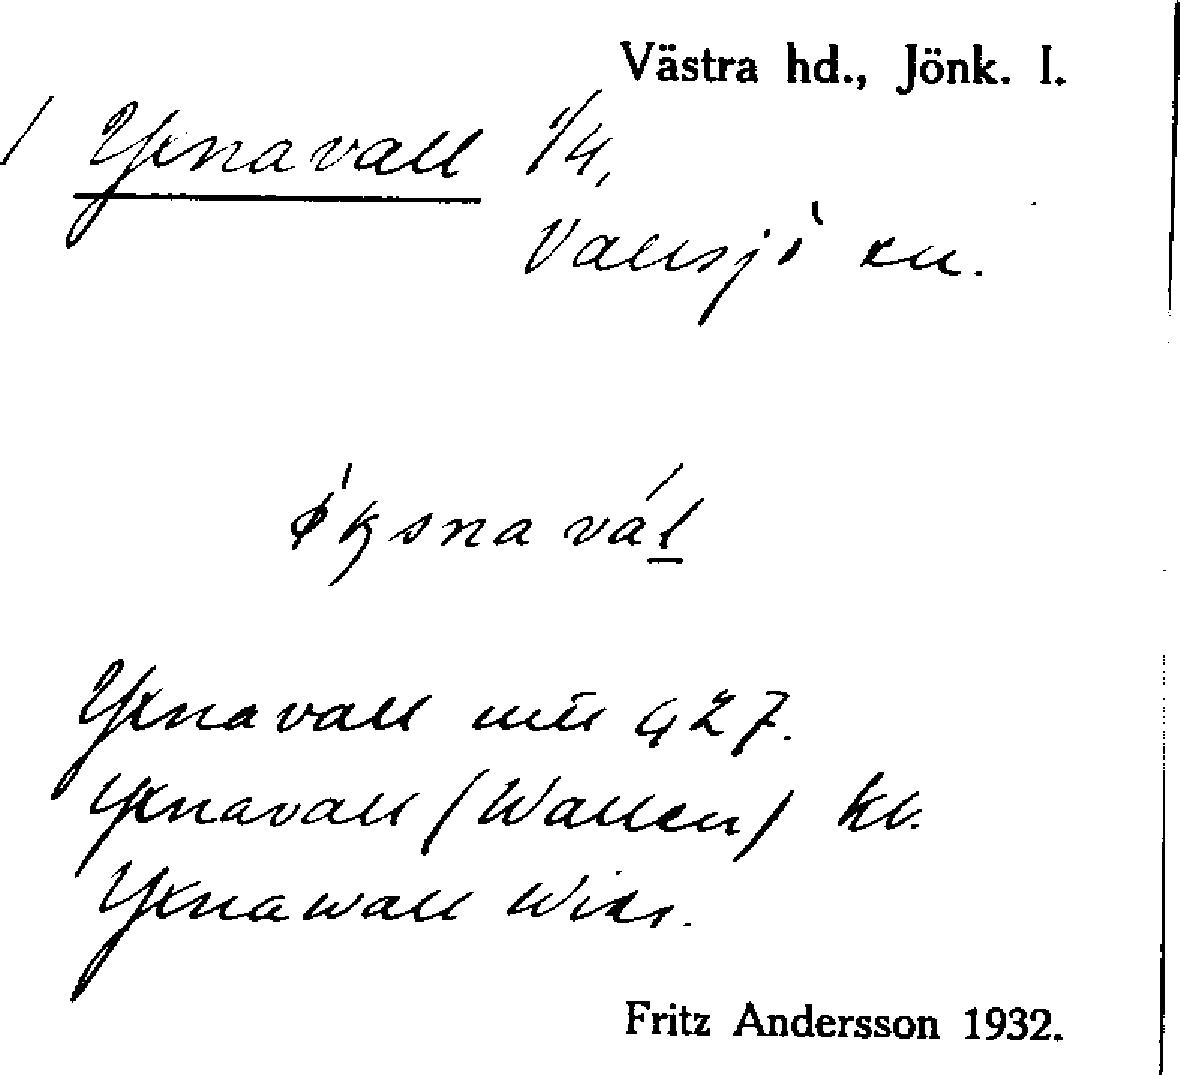 Västra hd., Jönk. l.
/ Yxnavall 1/4,
Vallsjö sn.
øksnavál
Yxnavall 427.
Yxnavall (Wallen) kb.
Yxnawall Wids.
Fritz Andersson 1932.